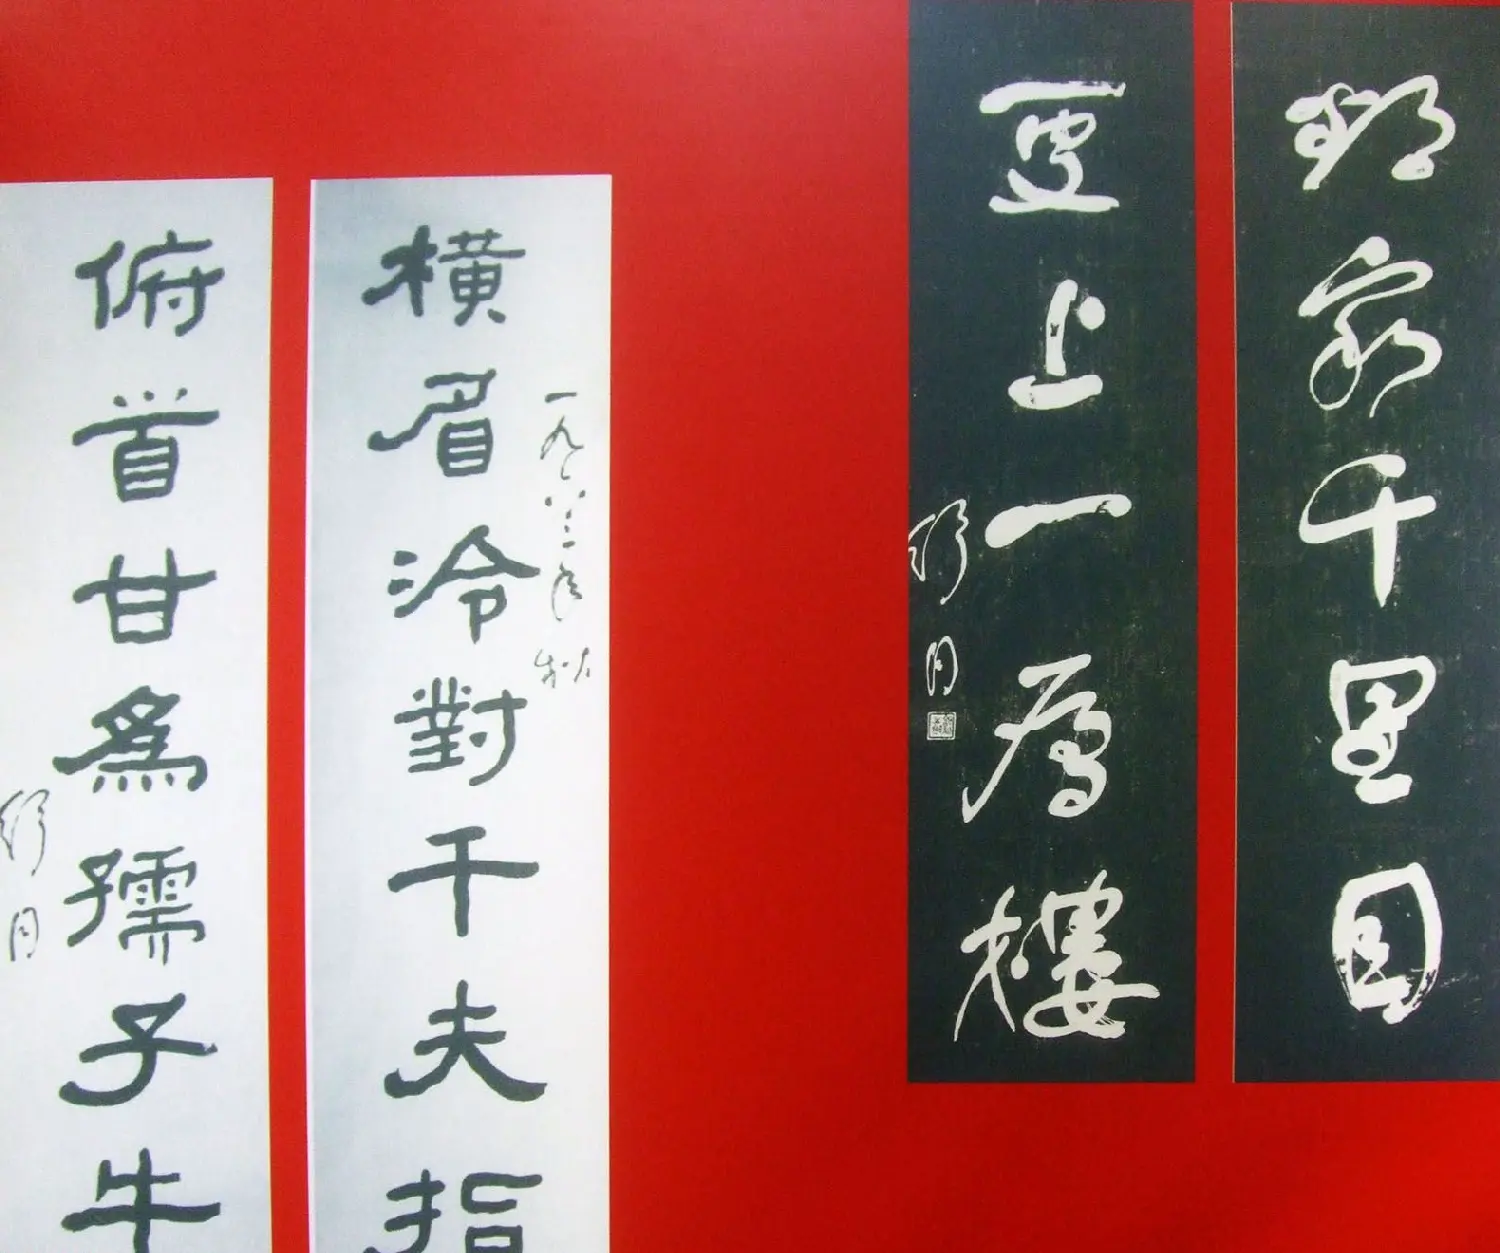 欲窮千里目
更上一層樓
舒同
橫眉冷對千夫指
一九八三年秋
俯首甘為孺子牛
舒同